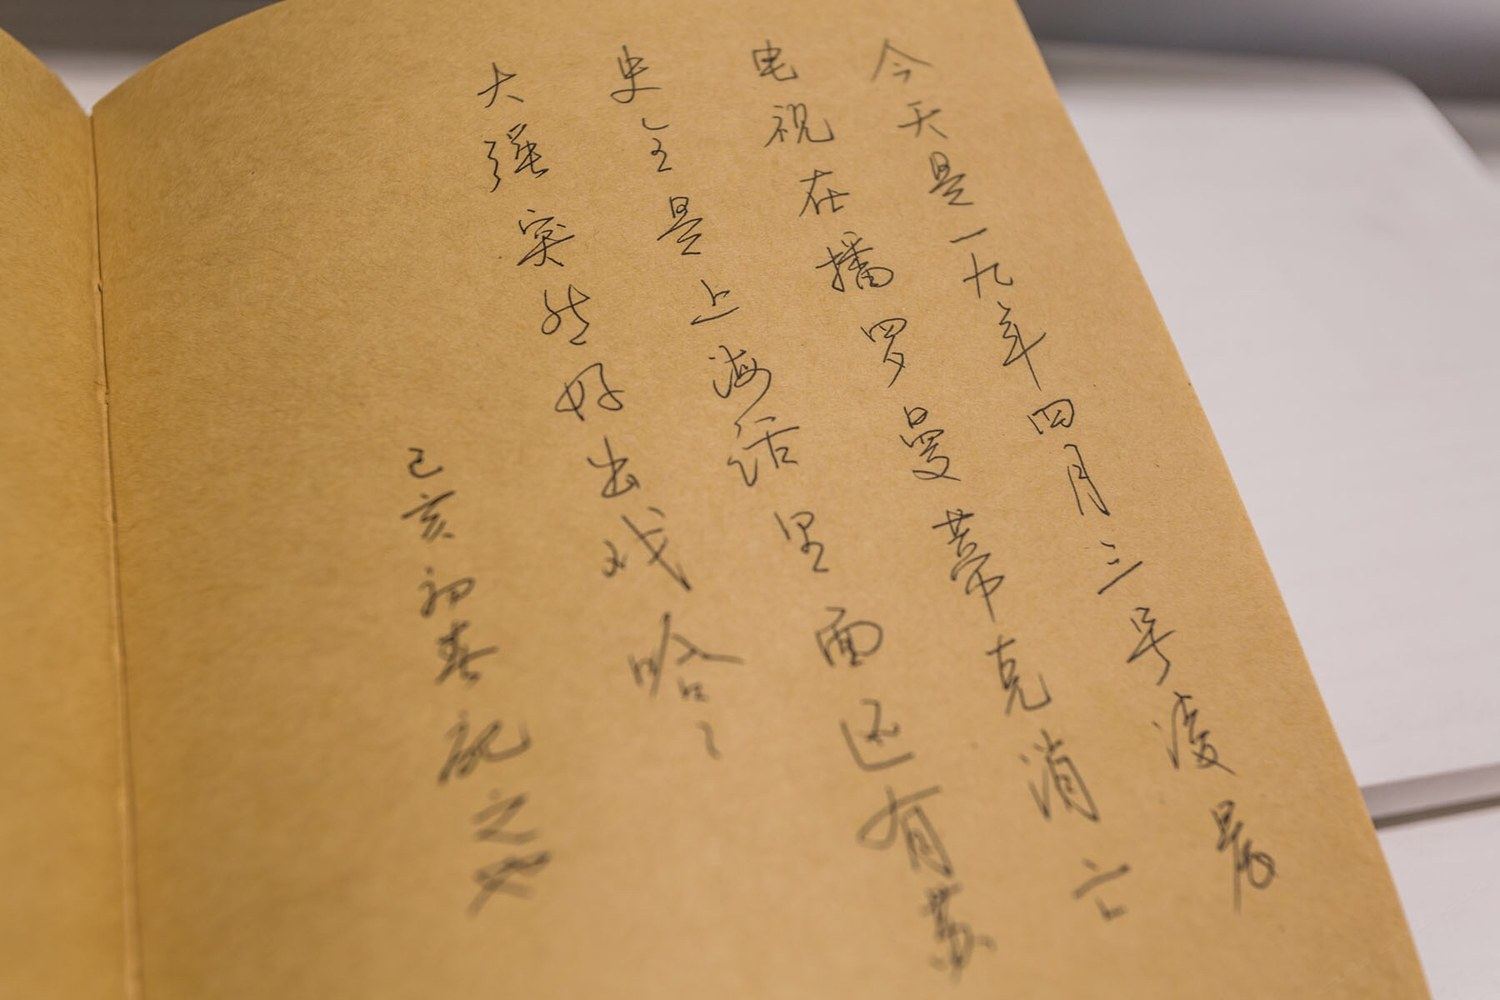 今天是一九年四月三号凌晨
电视在播罗曼蒂克消亡
史全是上海话里面还有苏
大强突然好出戏哈〻
己亥初春記之